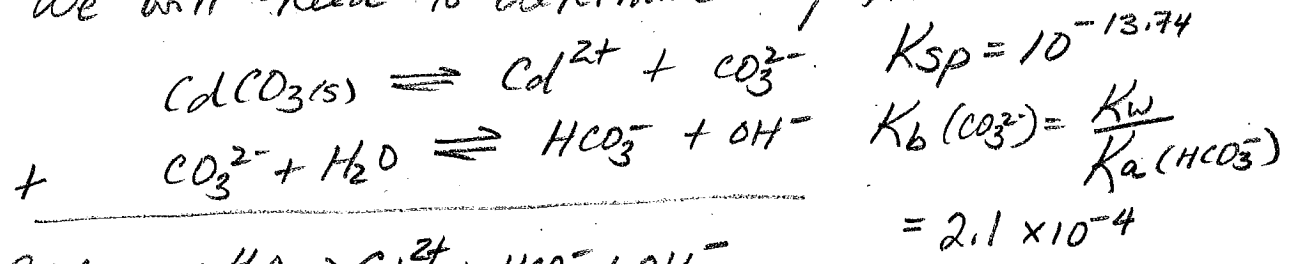 We will need to determine
CdCO₃(s) ⇌ Cd²⁺ + CO₃²⁻. Ksp = 10⁻¹³·⁷⁴
+ CO₃²⁻ + H₂O ⇌ HCO₃⁻ + OH⁻ Kb (CO₃²⁻) = Kw / Ka (HCO₃⁻)
= 2.1 × 10⁻⁴